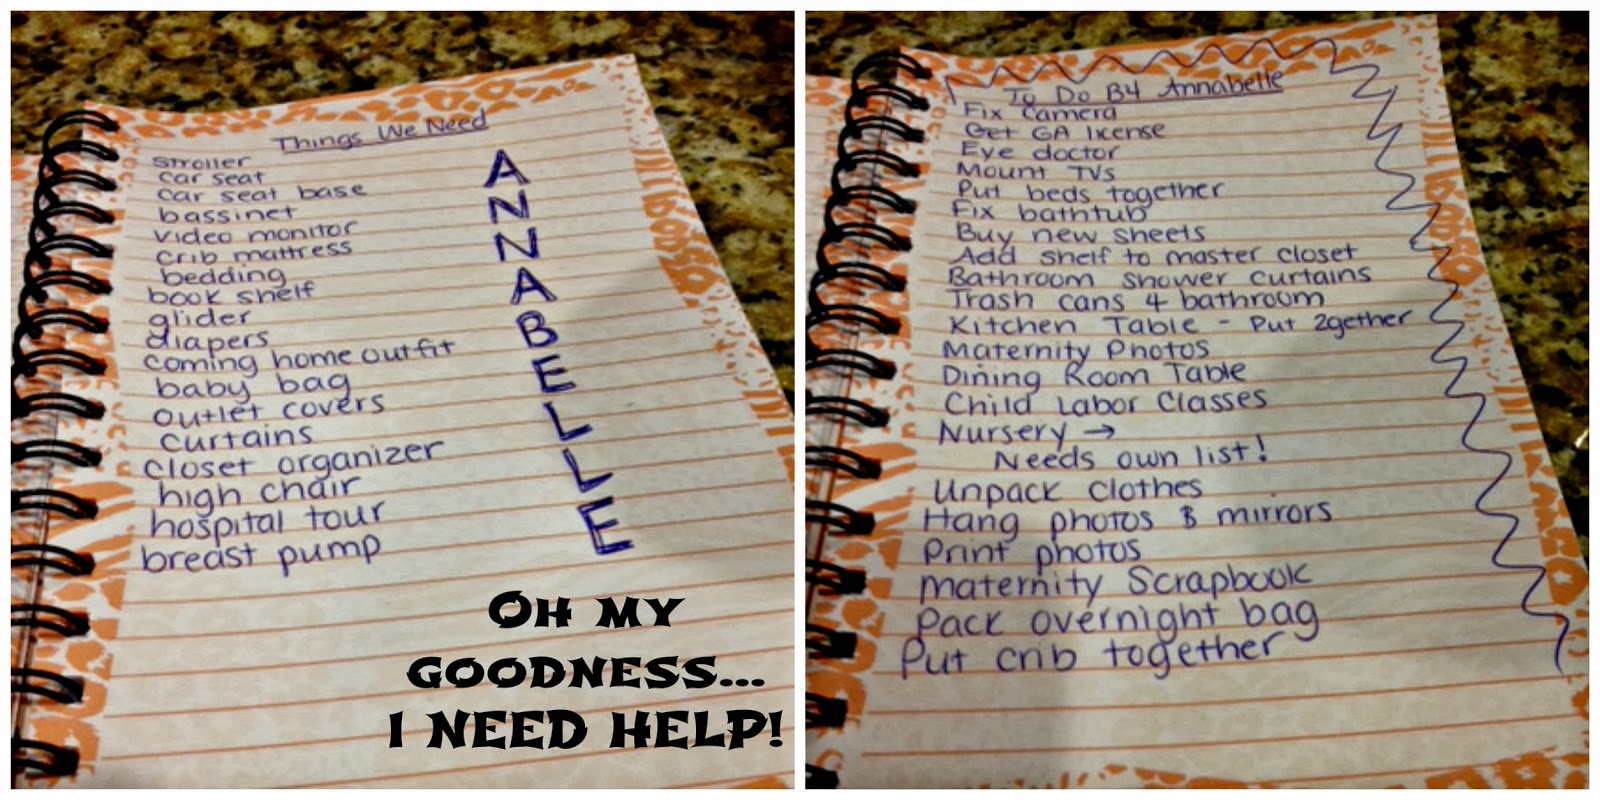 Things We Need
stroller
car seat
car seat base
bassinet
video monitor
crib mattress
bedding
book shelf
glider
diapers
coming home outfit
baby bag
outlet covers
curtains
closet organizer
high chair
hospital tour
breast pump
A
N
N
A
B
E
L
L
E
OH MY
GOODNESS...
I NEED HELP!
To Do B4 Annabelle
Fix camera
Get GA license
Eye doctor
Mount TVs
Put beds together
Fix bathtub
Buy new sheets
Add shelf to master closet
Bathroom shower curtains
Trash cans 4 bathroom
Kitchen Table - Put 2gether
Maternity Photos
Dining Room Table
Child Labor Classes
Nursery →
Needs own list!
Unpack clothes
Hang photos & mirrors
Print photos
Maternity Scrapbook
Pack overnight bag
Put crib together